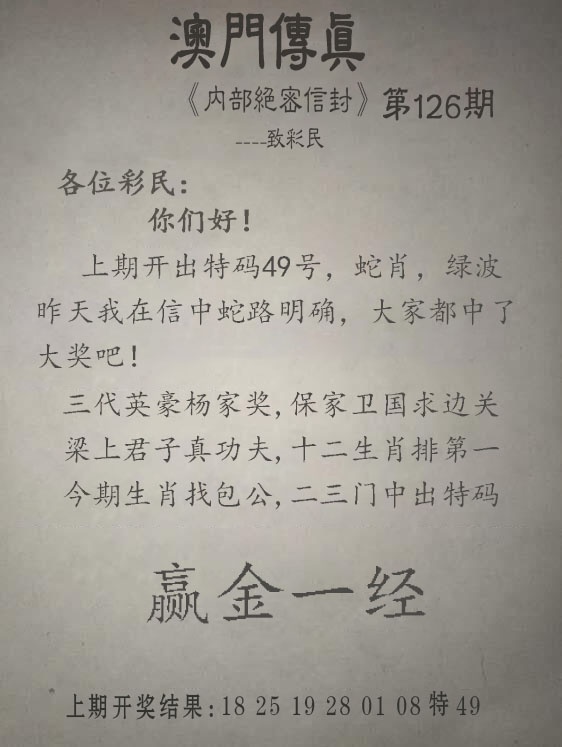 澳門傳眞
《内部絕密信封》第126期
----致彩民
各位彩民：
你们好！
上期开出特码49号，蛇肖，绿波
昨天我在信中蛇路明确，大家都中了
大奖吧！
三代英豪杨家奖,保家卫国求边关
梁上君子真功夫,十二生肖排第一
今期生肖找包公,二三门中出特码
赢金一经
上期开奖结果:18 25 19 28 01 08 特 49